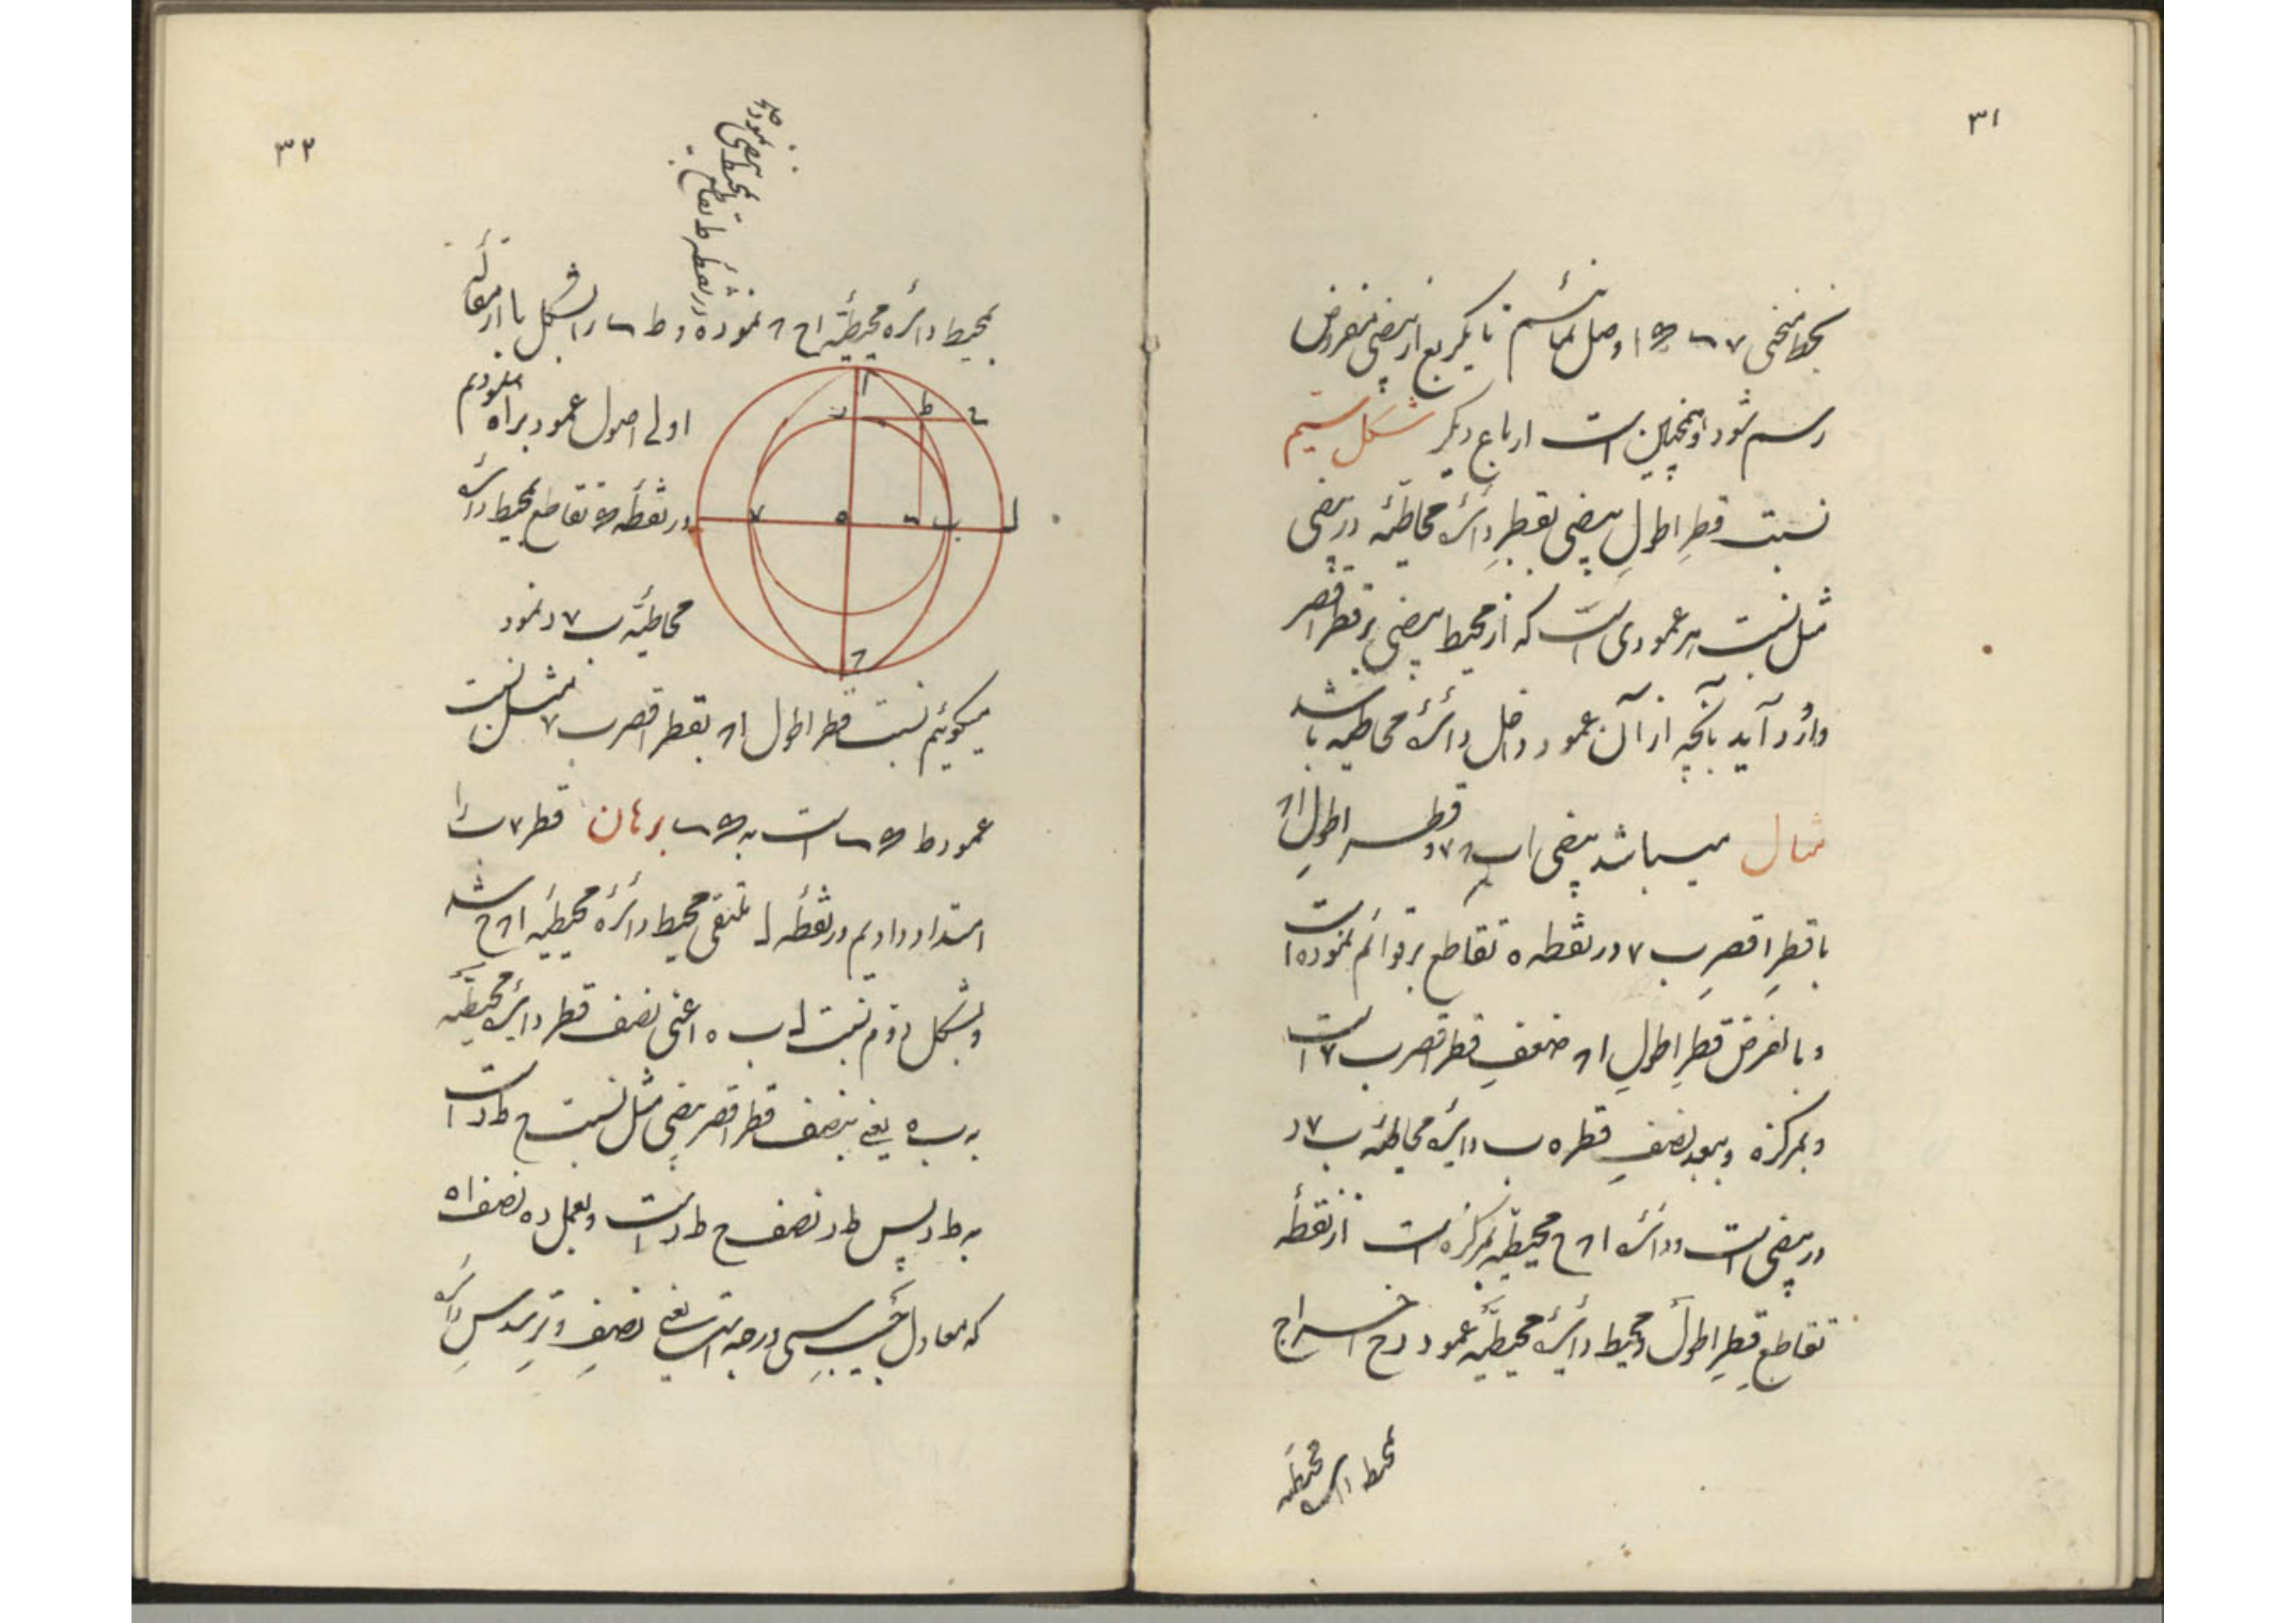 ۳۱
بخط منحنی ۷ ... ا وصل نمائیم تا یکربع از بیضی مفروض
رسم شود و همچنین است ارباع دیگر شکل سیم
نسبت قطرِ اطولِ بیضی بقطرِ دائرهٔ محاطیّه در بیضی
مثل نسبت هر عمودی است که از محیط بیضی بر قطر اقصر
وارد آید بآنچه از آن عمود داخل دائرهٔ محاطیه باشد
مثال میباشد بیضی اب۸۷ و قطر اطولِ ا۸
با قطرِ اقصرِ ب۷ در نقطه ه تقاطع بر قوائم نموده است
و بالفرض قطرِ اطولِ ا۸ ضعفِ قطر اقصر ب۷ است
و بمرکز ه و ببعد نصفِ قطر ه ب دایرهٔ محاطیّه ب۷د
در بیضی است و دائرهٔ ا۸ح محیطیّه بمرکز ه است از نقطهٔ
تقاطع قطرِ اطول و محیط دایرهٔ محیطیّه عمود دح اخراج
بمحیط دائرهٔ محیطیّه
۳۲
بمحیط دائره محیطیّه اح۸ نموده و ط ... را بشکل یازدهم مقالهٔ
در نقطه ط تقاطع
بمحیط بیضی نموده
اولی اصول عمود براه نمودیم
در نقطهٔ ... تقاطع بمحیط دائرهٔ
محاطیّه ب۷د نمود
میگوئیم نسبت قطر اطول ا۸ بقطر اقصر ب۷ مثل نسبت
عمود ط ... است به ... برهان قطر ۷ب را
امتداد دادیم در نقطهٔ ل ملتقی محیط دائرهٔ محیطیّه ا۸ح شد
و بشکل دوّم نسبت ل ه اعنی نصف قطر دایرهٔ محیطیّه
به ب ه یعنی بنصف قطر اقصر بیضی مثل نسبت ح ط د است
به ط د پس ط د نصف ح ط د است و بعمل د ه نصف اه
که معادل جیب سی درجه است یعنی نصفِ وترِ سدسِ دائره